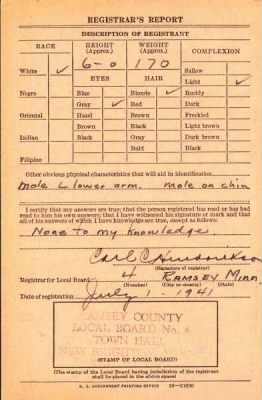 REGISTRAR'S REPORT
DESCRIPTION OF REGISTRANT
RACE HEIGHT (Approx.) WEIGHT (Approx.) COMPLEXION
White ✓ 6-0 170 Sallow
EYES HAIR Light ✓
Negro Blue Blonde ✓ Ruddy
Gray ✓ Red Dark
Oriental Hazel Brown Freckled
Brown Black Light brown
Indian Black Gray Dark brown
Bald Black
Filipino
Other obvious physical characteristics that will aid in identification
Mole L. lower arm. Mole on chin
I certify that my answers are true; that the person registered has read or has had
read to him his own answers; that I have witnessed his signature or mark and that
all of his answers of which I have knowledge are true, except as follows:
None to my knowledge
Carl C
(Signature of registrar)
Registrar for Local Board 4 Ramsey Minn.
Date of registration July 1-1941
RAMSEY COUNTY
LOCAL BOARD No. 4
TOWN HALL
NEW
(STAMP OF LOCAL BOARD)
(The stamp of the Local Board having jurisdiction of the registrant
shall be placed in the above space)
U. S. GOVERNMENT PRINTING OFFICE